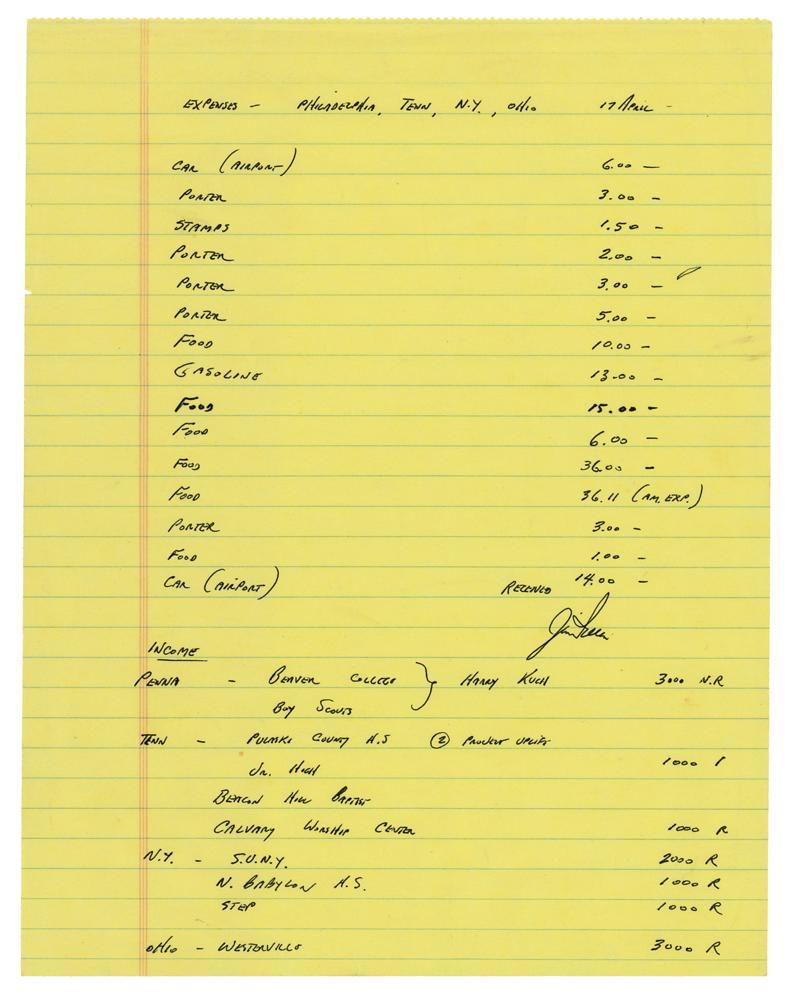 EXPENSES - PHILADELPHIA, TENN, N.Y., OHIO 17 APRIL -
CAR (AIRPORT) 6.00 -
PORTER 3.00 -
STAMPS 1.50 -
PORTER 2.00 -
PORTER 3.00 -
PORTER 5.00 -
FOOD 10.00 -
GASOLINE 13.00 -
FOOD 15.00 -
FOOD 6.00 -
FOOD 36.00 -
FOOD 36.11 (AM. EXP.)
PORTER 3.00 -
FOOD 1.00 -
CAR (AIRPORT) RECEIVED 14.00 -
INCOME
PENNA - BEAVER COLLEGE } HARRY KUCH 3000 N.R
BOY SCOUTS
TENN - PULASKI COUNTY H.S ② PROJECT UPLIFT
JR. HIGH 1000
BEACON HILL BAPTIST
CALVARY WORSHIP CENTER 1000 R
N.Y. - S.U.N.Y. 2000 R
N. BABYLON H.S. 1000 R
STEP 1000 R
OHIO - WESTERVILLE 3000 R